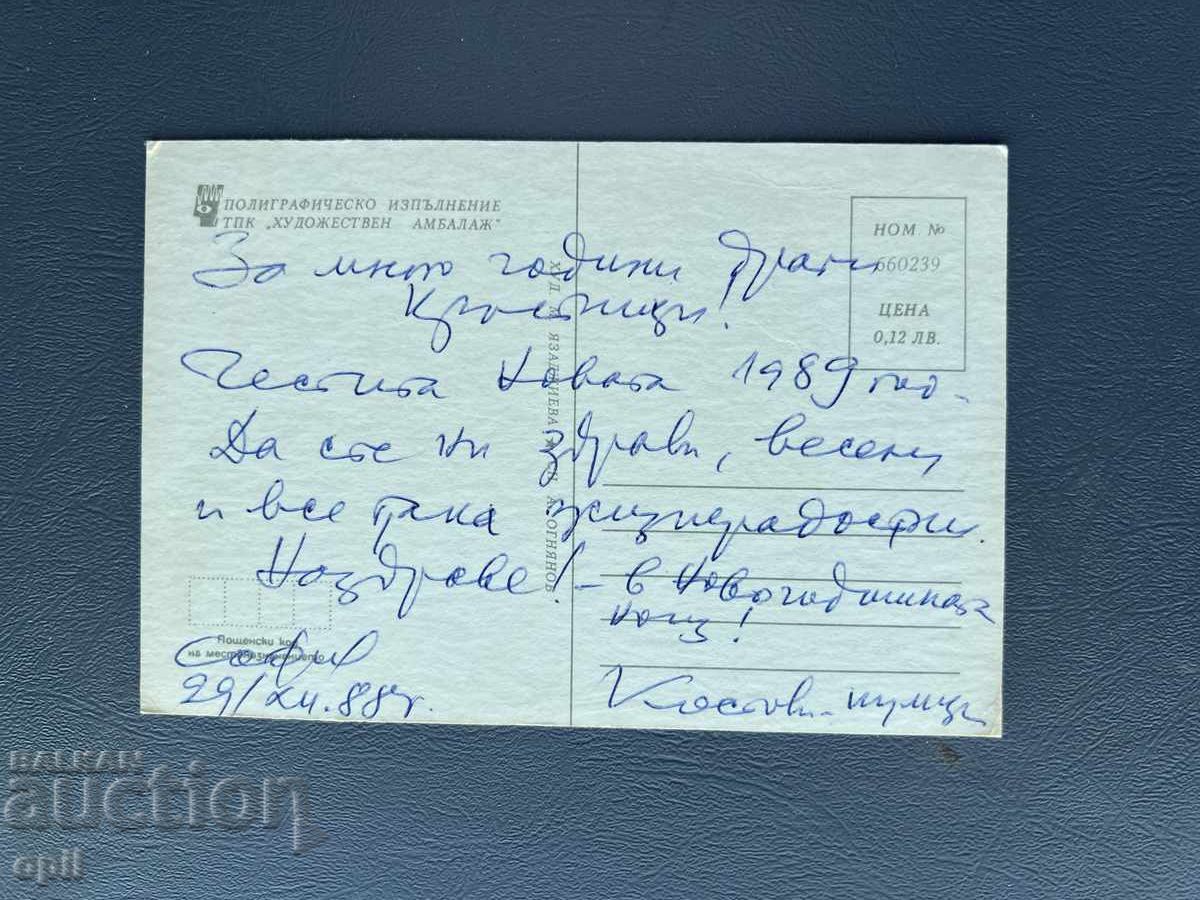 ПОЛИГРАФИЧЕСКО ИЗПЪЛНЕНИЕ
ТПК „ХУДОЖЕСТВЕН АМБАЛАЖ"
НОМ. №
660239
ЦЕНА
0,12 ЛВ.
За много години драги
Кръстници!
Честита Новата 1989 год.
Да сте ни здрави, весели
и все така жизнерадостни.
Наздраве! – в Новогодишната
нощ!
София
29/XII.88г.
Костови
Пощенски код
на местоназначението
ХУД. ЯЗАДЖИЕВА ОГНЯНОВ
BALKAN
auction
opil